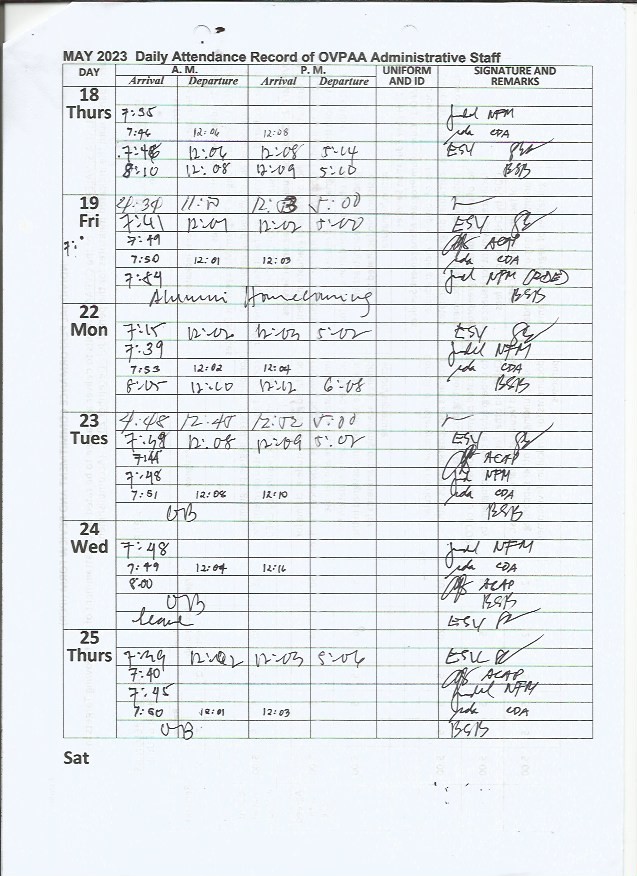 MAY 2023 Daily Attendance Record of OVPAA Administrative Staff
DAY A. M. P. M. UNIFORM AND ID SIGNATURE AND REMARKS
Arrival Departure Arrival Departure
18 Thurs
7:35 NFM
7:46 12:06 12:08 CDA
7:48 12:06 12:08 5:14 ESV
8:10 12:08 12:09 5:10 BSB
19 Fri
4:34 5:00
7:41 12:01 12:02 5:00 ESV
7:49 ACAP
7:50 12:01 12:03 CDA
7:54 NFM
Alumni Homecoming BSB
22 Mon
7:15 12:02 12:03 5:02 ESV
7:39 NFM
7:53 12:02 12:04 CDA
8:05 12:10 12:12 6:08 BSB
23 Tues
4:48 12:45 12:52 5:00
12:08 12:09 5:02 ESV
7:45 ACAP
7:48 NFM
7:51 12:08 12:10 CDA
OB BSB
24 Wed
7:48 NFM
7:49 12:04 12:16 CDA
8:00 ACAP
OB BSB
leave ESV
25 Thurs
7:39 12:02 12:03 5:06 ESV
7:40 ACAP
7:45 NFM
7:50 12:01 12:03 CDA
OB BSB
Sat